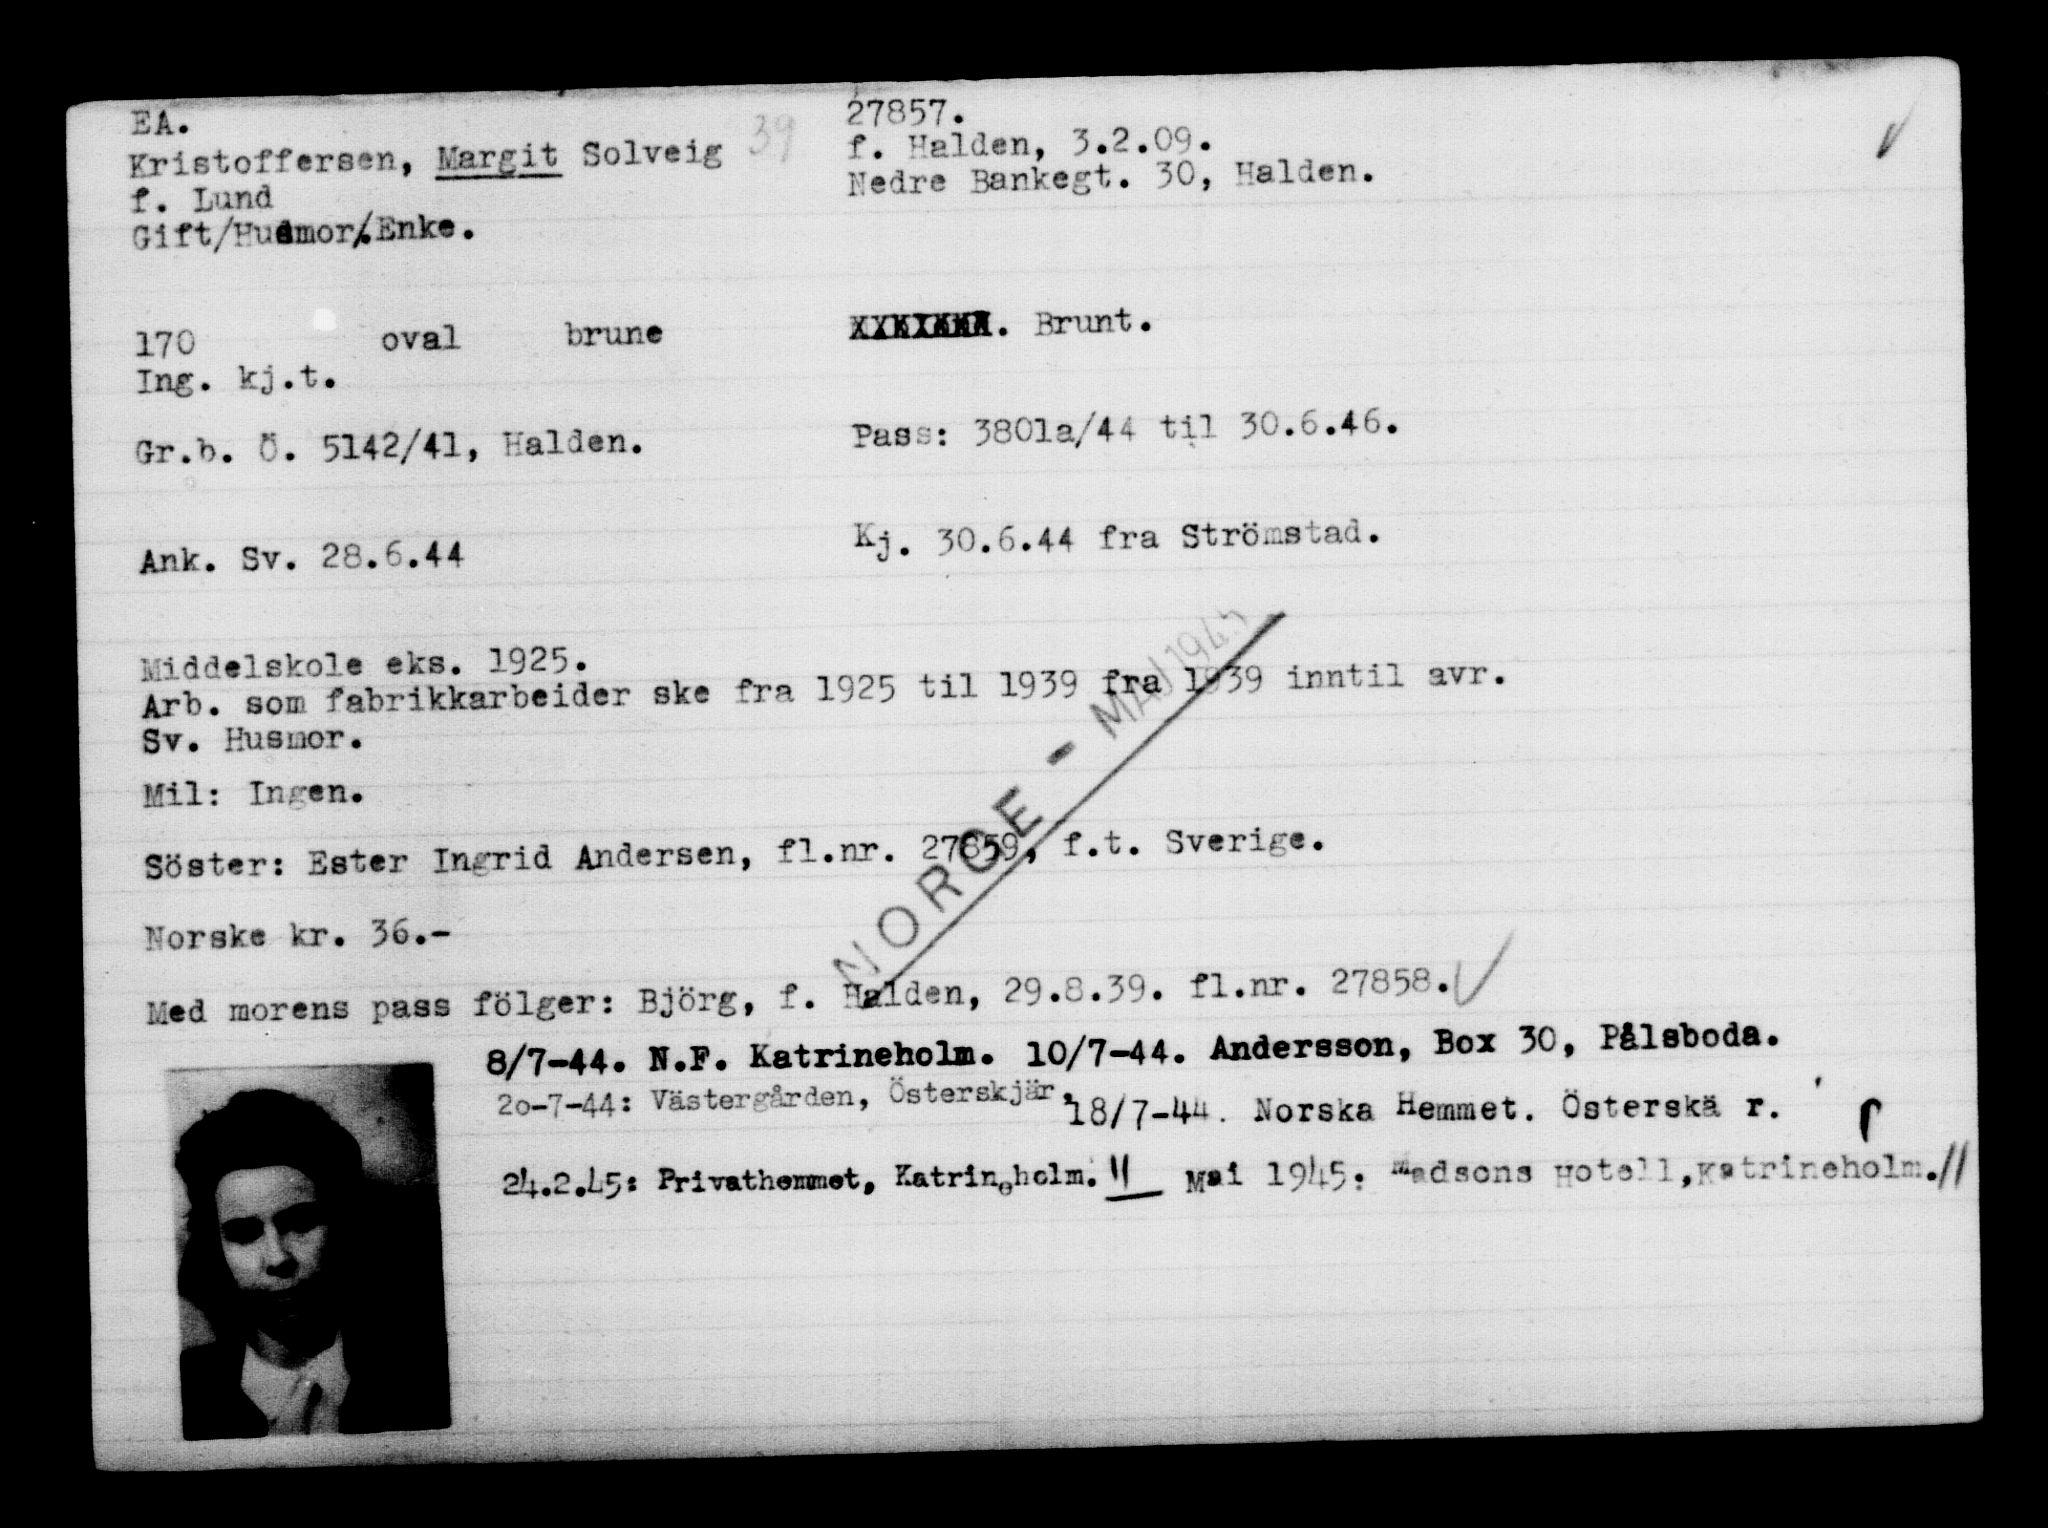 EA.
27857.
Kristoffersen, Margit Solveig 39
f. Halden, 3.2.09.
f. Lund
Nedre Bankegt. 30, Halden.
Gift/Husmor/.Enke.
170 oval brune
. Brunt.
Ing. kj.t.
Gr.b. Ö. 5142/41, Halden.
Pass: 3801a/44 til 30.6.46.
Ank. Sv. 28.6.44
Kj. 30.6.44 fra Strömstad.
Middelskole eks. 1925.
Arb. som fabrikkarbeider ske fra 1925 til 1939 fra 1939 inntil avr.
Sv. Husmor.
Mil: Ingen.
Söster: Ester Ingrid Andersen, fl.nr. 27859, f.t. Sverige.
Norske kr. 36.-
NORGE - MAI 1945
Med morens pass fölger: Björg, f. Halden, 29.8.39. fl.nr. 27858.
8/7-44. N.F. Katrineholm. 10/7-44. Andersson, Box 30, Pålsboda.
20-7-44: Västergården, Österskjär, 18/7-44. Norska Hemmet. Österskä r.
24.2.45: Privathemmet, Katrineholm. Mai 1945: Madsons Hotell, Katrineholm.